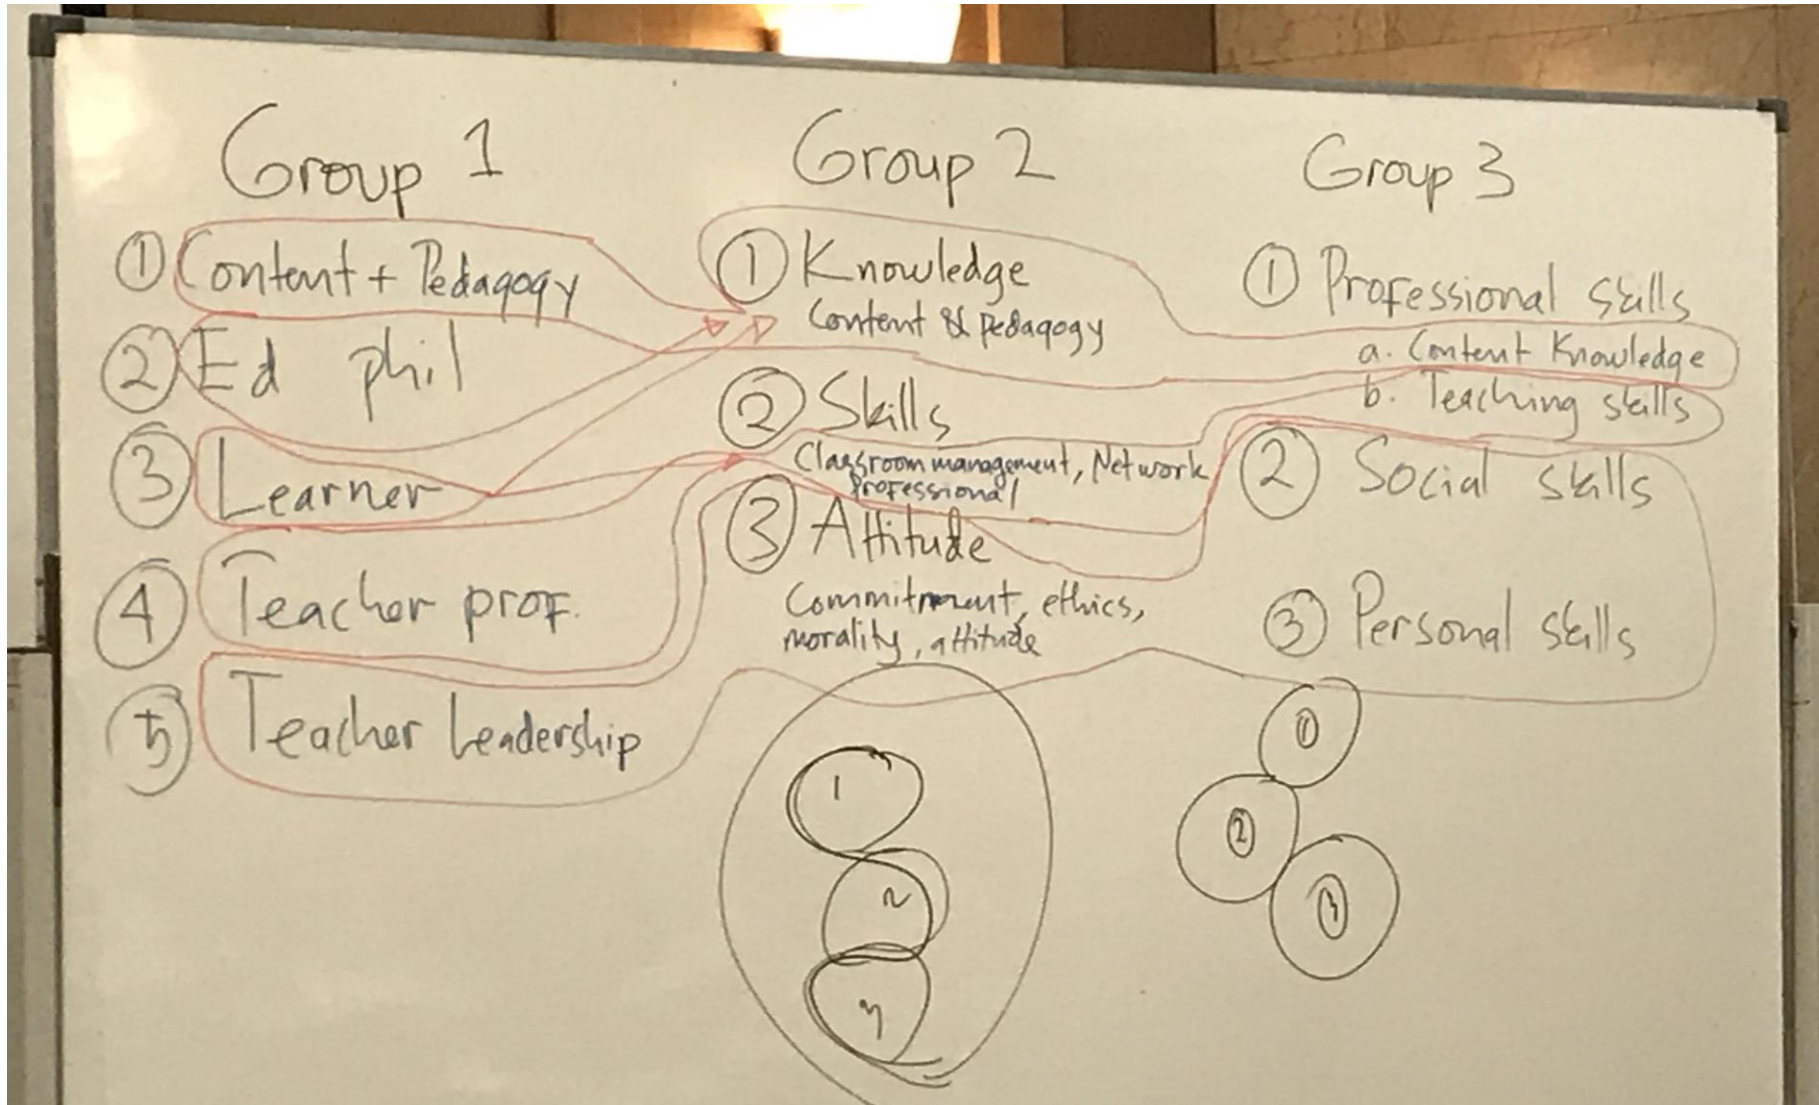 Group 1
① Content + Pedagogy
② Ed phil
③ Learner
④ Teacher prof.
⑤ Teacher Leadership
Group 2
① Knowledge
Content & Pedagogy
② Skills
Classroom management, Network
Professional
③ Attitude
Commitment, ethics,
morality, attitude
1
2
3
Group 3
① Professional skills
a. Content Knowledge
b. Teaching skills
② Social skills
③ Personal skills
①
②
③